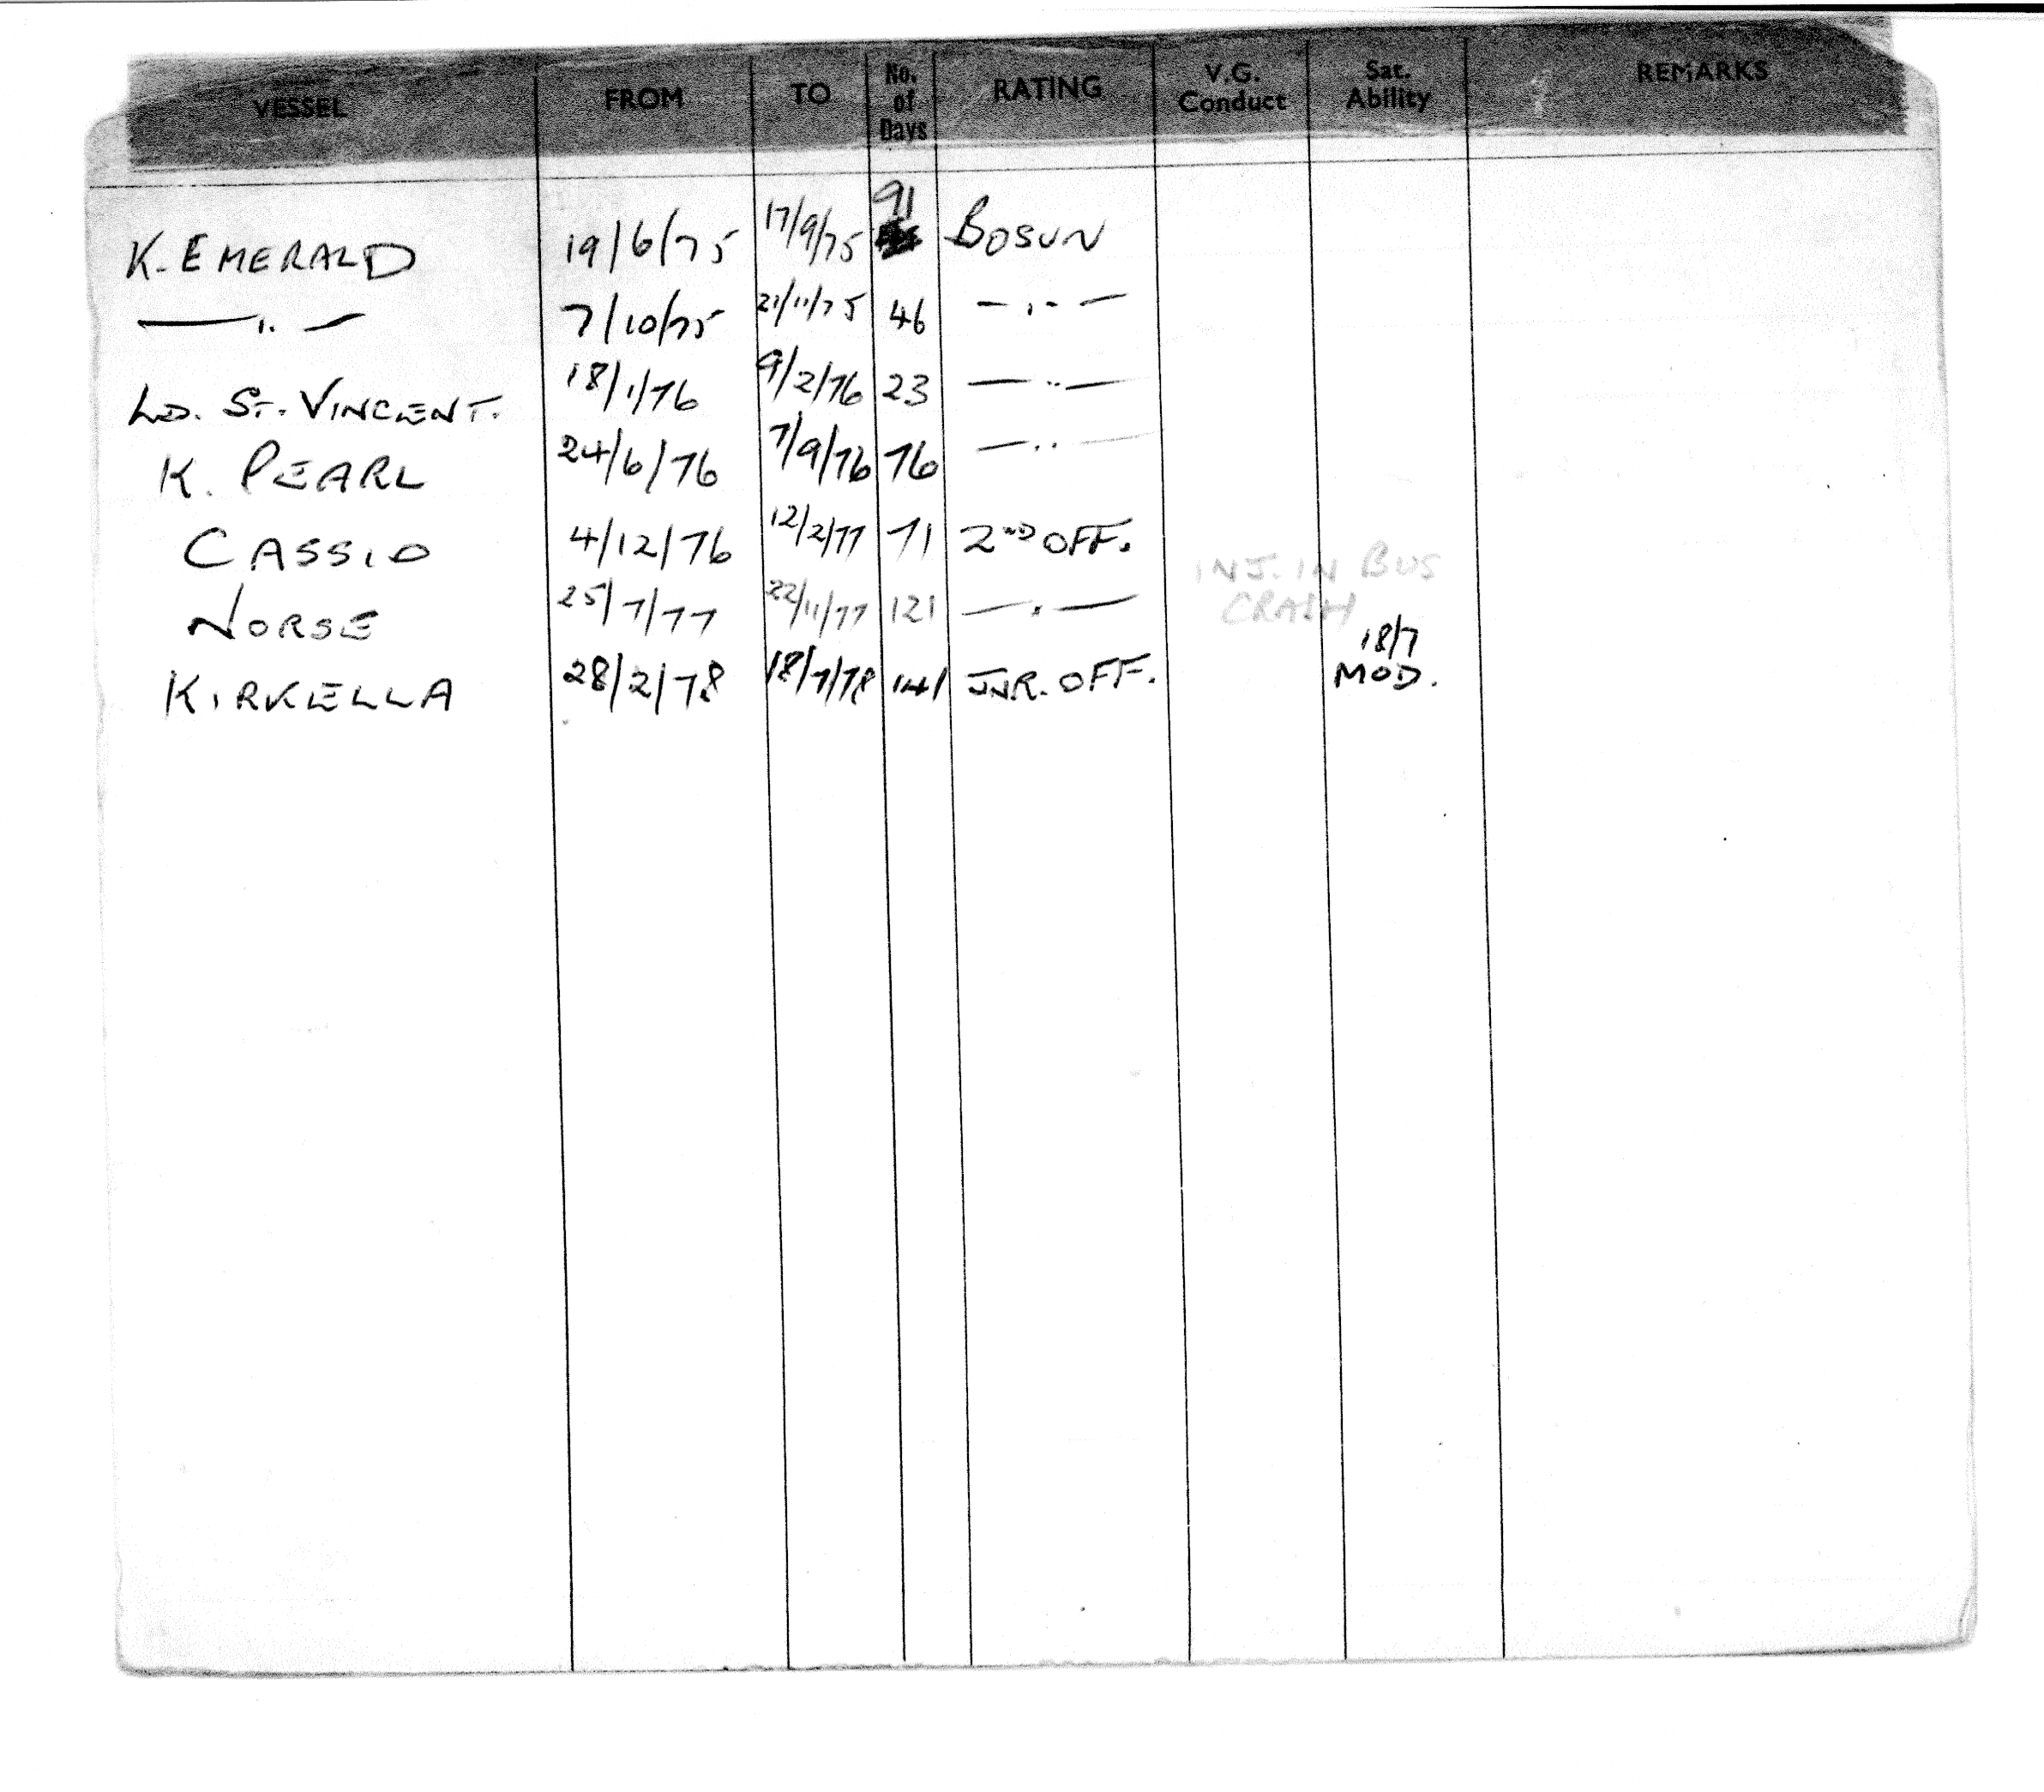 VESSEL FROM TO No. of Days RATING V.G. Conduct Sat. Ability REMARKS
K. EMERALD 19/6/75 17/9/75 91 BOSUN
—〃— 7/10/75 21/11/75 46 —〃—
LD. ST. VINCENT. 18/1/76 9/2/76 23 —〃—
K. PEARL 24/6/76 7/9/76 76 —〃—
CASSIO 4/12/76 12/2/77 71 2ND OFF. INJ. IN BUS
NORSE 25/7/77 22/11/77 121 —〃— CRASH
KIRKELLA 28/2/78 18/7/78 141 JNR. OFF. 18/7
MOD.